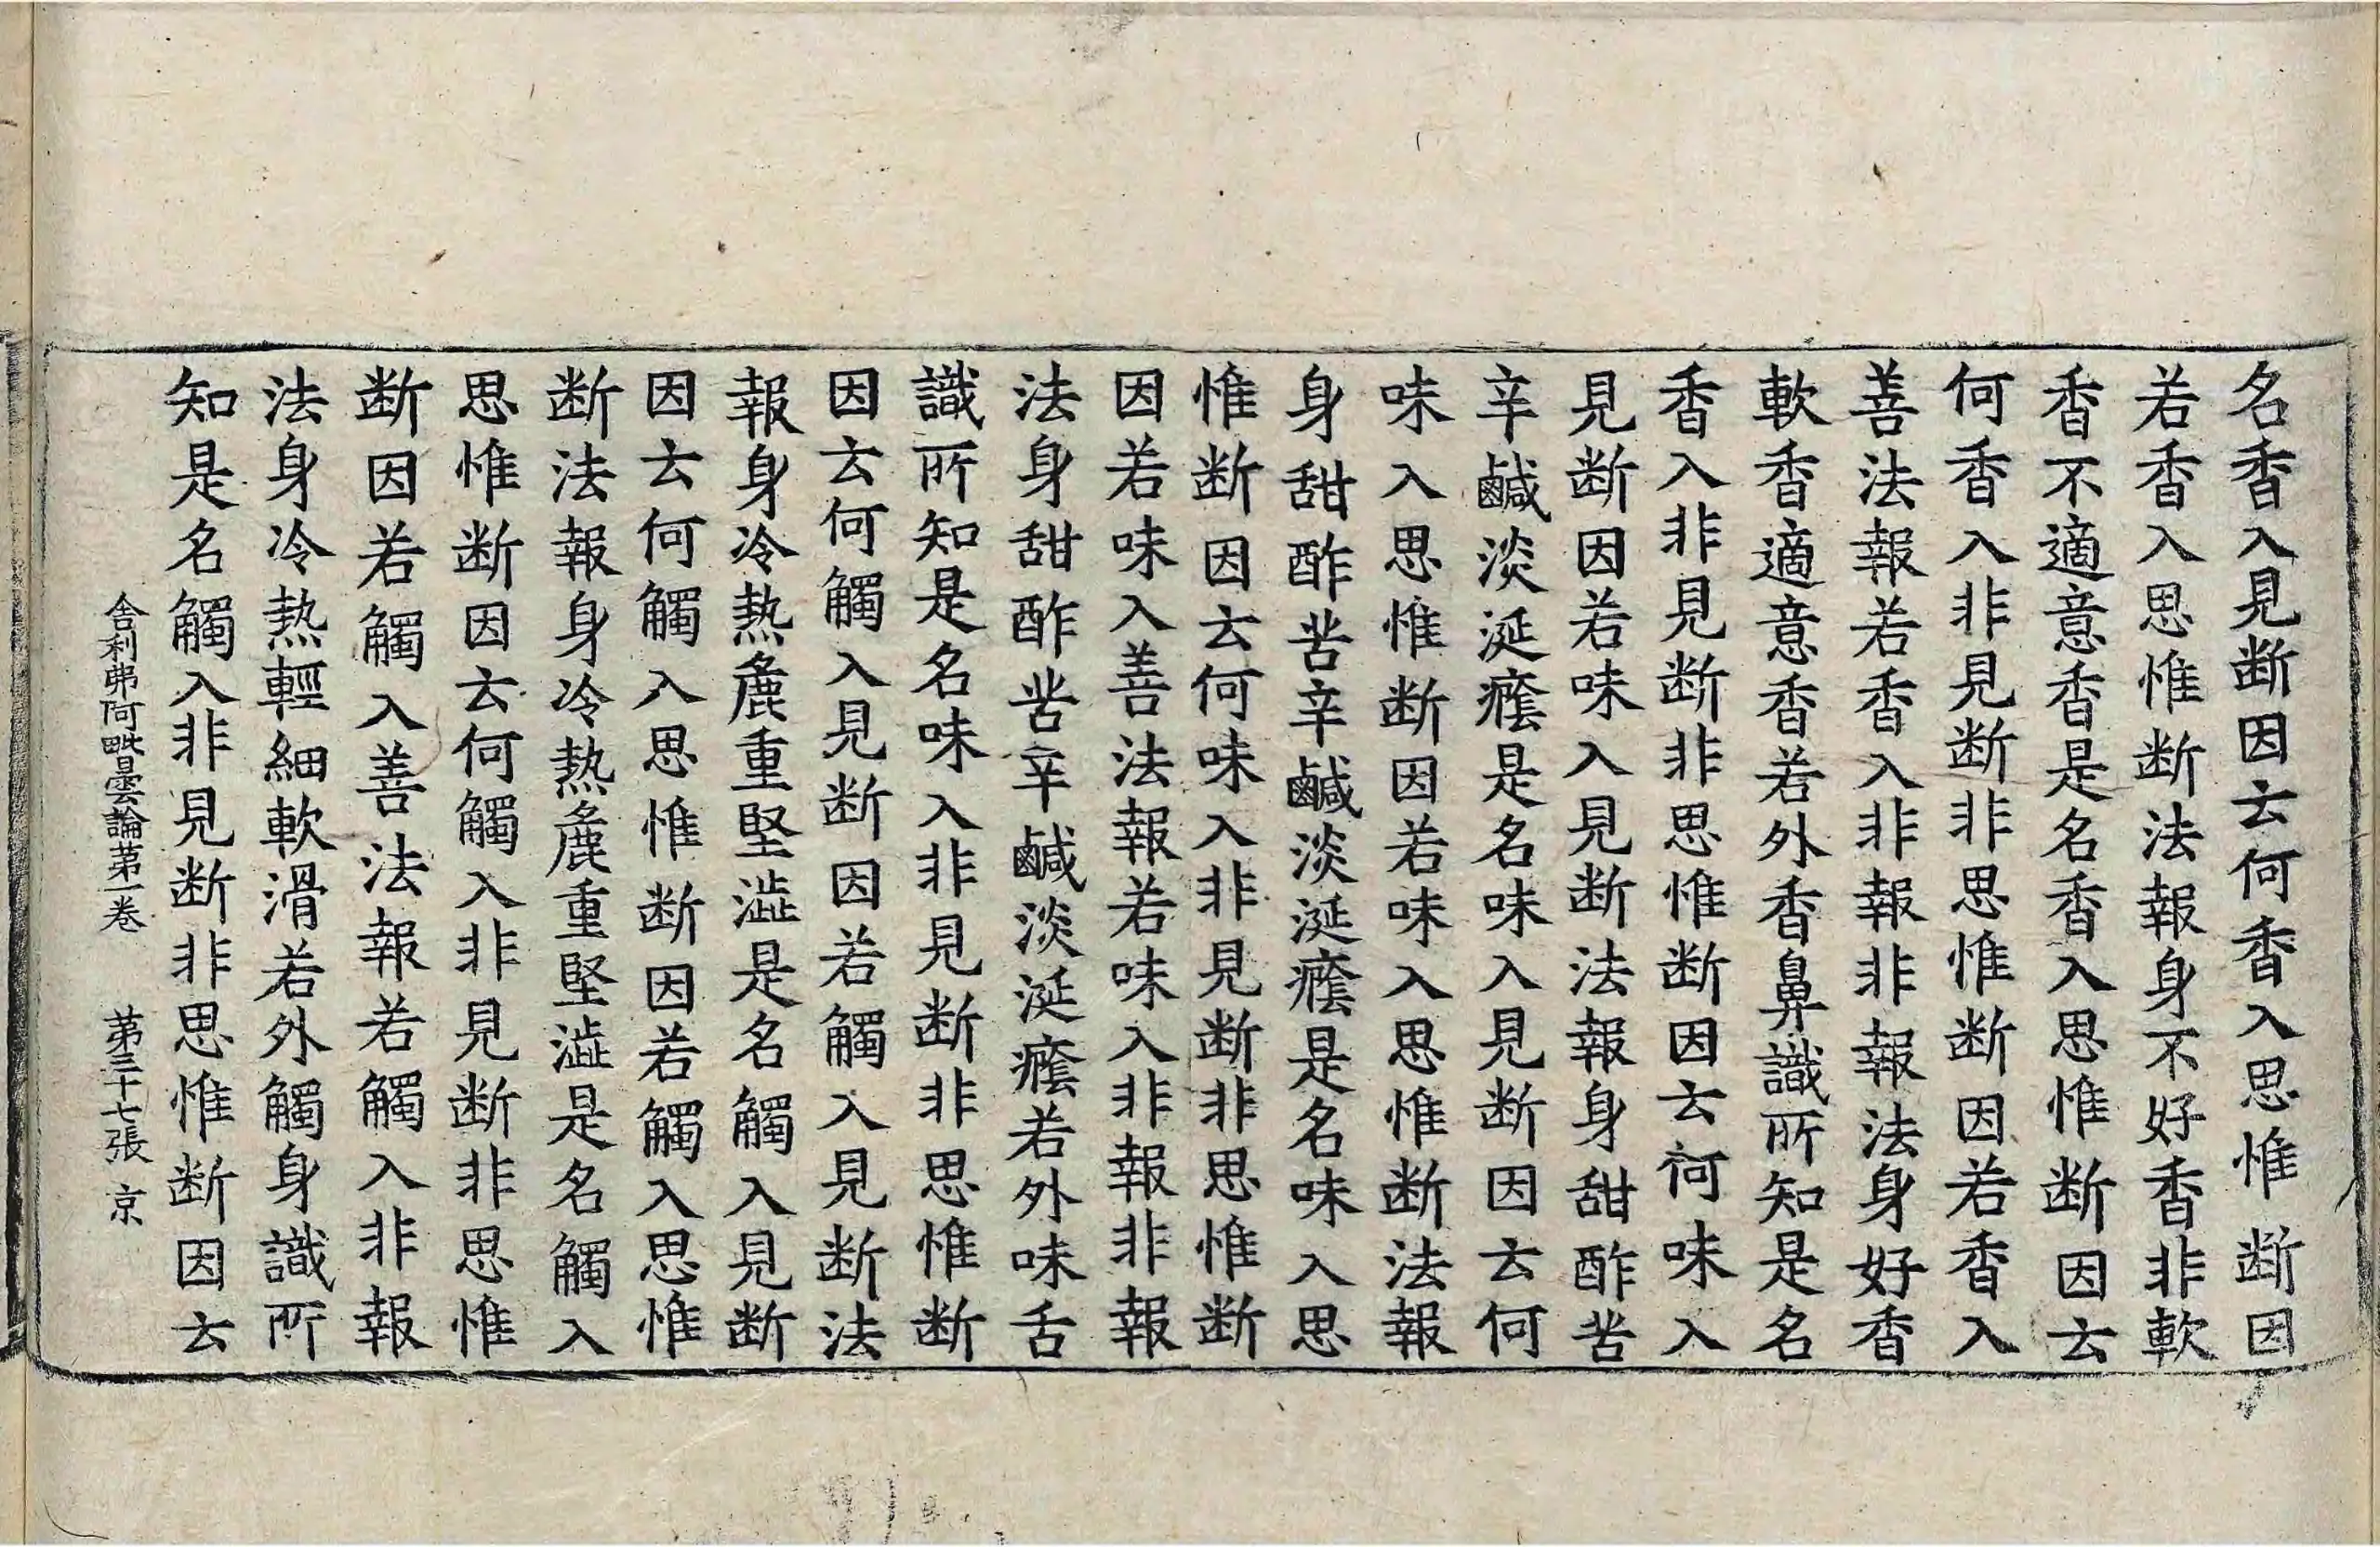 名香入見断因云何香入思惟断因
若香入思惟断法報身不好香非軟
香不適意香是名香入思惟断因云
何香入非見断非思惟断因若香入
善法報若香入非報非報法身好香
軟香適意香若外香鼻識所知是名
香入非見断非思惟断因云何味入
見断因若味入見断法報身甜酢苦
辛鹹淡涎癊是名味入見断因云何
味入思惟断因若味入思惟断法報
身甜酢苦辛鹹淡涎癊是名味入思
惟断因云何味入非見断非思惟断
因若味入善法報若味入非報非報
法身甜酢苦辛鹹淡涎癊若外味舌
識所知是名味入非見断非思惟断
因云何觸入見断因若觸入見断法
報身冷熱麁重堅澁是名觸入見断
因云何觸入思惟断因若觸入思惟
断法報身冷熱麁重堅澁是名觸入
思惟断因云何觸入非見断非思惟
断因若觸入善法報若觸入非報
法身冷熱輕細軟滑若外觸身識所
知是名觸入非見断非思惟断因云
舎利弗阿毗曇論第一卷 第三十七張 京